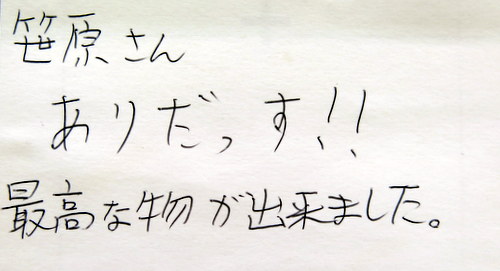 笹原さん
ありだっす!!
最高な物が出来ました。